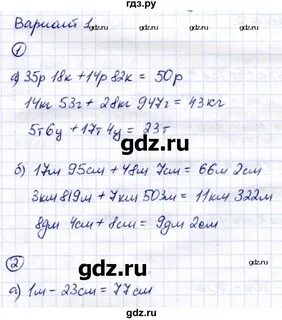 гдз.ру
Вариант 1
1
а) 35р 18к + 14р 82к = 50р
14кг 53г + 28кг 947г = 43кг
5т 6ц + 17т 4ц = 23т
gdz.ru
gdz.ru
б) 17м 95см + 48м 7см = 66м 2см
3км 819м + 7км 503м = 11км 322м
8дм 4см + 8см = 9дм 2см
gdz.ru
gdz.ru
2
а) 1м - 23см = 77см